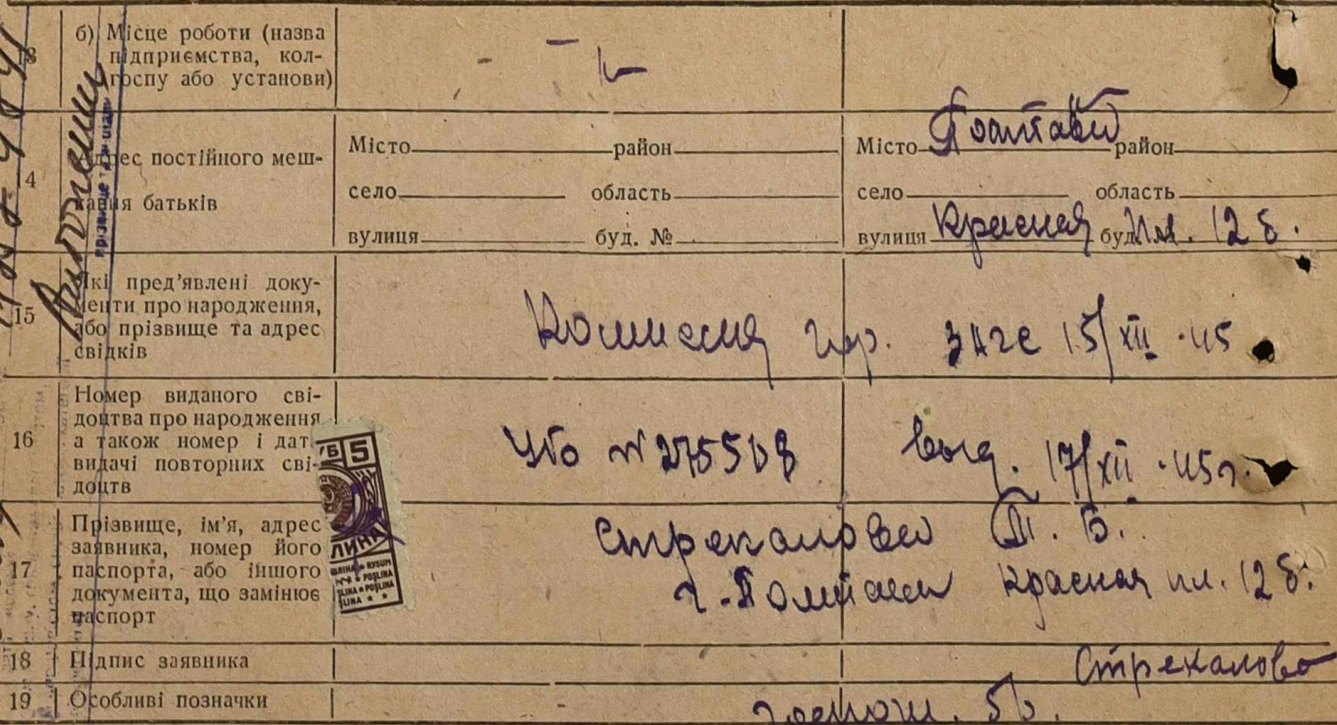 13 б) Місце роботи (назва
підприємства, кол-
госпу або установи)
14 Адрес постійного меш-
кання батьків
Місто район
село область
вулиця буд. №
Місто Полтава район
село область
вулиця Красная буд. пл. 12 б.
15 Які пред'явлені доку-
менти про народження,
або прізвище та адрес
свідків
Комиссия гор. ЗАГС 15/XII-45
16 Номер виданого сві-
доцтва про народження
а також номер і дата
видачі повторних сві-
доцтв
выд. 17/XII-45г.
17 Прізвище, ім'я, адрес
заявника, номер його
паспорта, або іншого
документа, що замінює
паспорт
Стрекалова П. Б.
г. Полтава Красная пл. 12 б.
18 Підпис заявника
Стрекалова
19 Особливі позначки
госпош. 5р.
УБ 5
ЛИНА
POSLINA